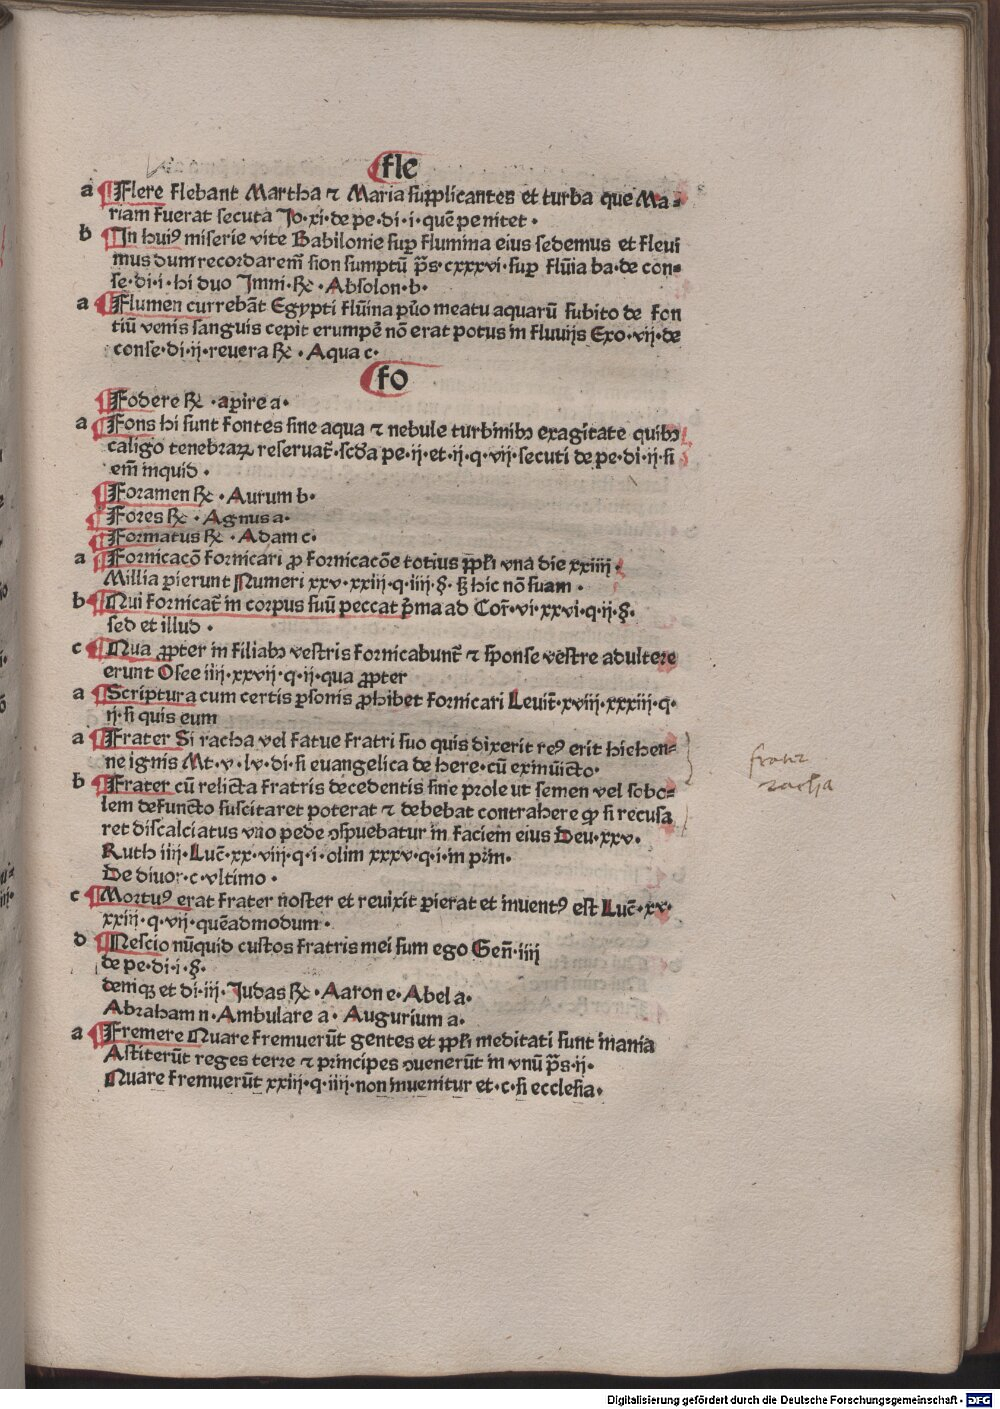 fle
a Flere Flebant Martha ⁊ Maria supplicantes et turba que Ma-
riam fuerat secuta Jo·xi·de pe·di·i·quē penitet·
b In huiꝰ miserie vite Babilonie sup flumina eius sedemus et flevi
mus dum recordaremͬ sion sumptū p̄s·cxxxvi·sup flūia ba·de con-
se·di·i·hi duo Jmni·℞·Absolon·b·
a Flumen currebāt Egypti flūina pṙo meatu aquarū subito de fon
tiū venis sanguis cepit erumpē nō erat potus in fluvijs Exo·vij·de
conse·di·ij·revera ℞·Aqua c·
fo
Fodere ℞·aperire a·
a Fons hi sunt fontes sine aqua ⁊ nebule turbinibꝫ exagitate quibꝫ
caligo tenebraꝝ reservat̄·scd̄a pe·ij·et·ij·q·vij·secuti de pe·di·ij·si
em̄ inquid·
Foramen ℞·Aurum b·
Fores ℞·Agnus a·
Formatus ℞·Adam c·
a Fornicacō Fornicari ꝓ fornicacōe totius ppl̄i vna die xxiiij·
Millia perierunt Numeri xxv·xxiij·q·iiij·§·sꝫ hic nō suam·
b Qui fornicat̄ in corpus suū peccat p̄ma ad Cor̄·vi·xxvi·q·ij·§·
sed et illud·
c Qua ꝓpter in filiabꝫ vestris fornicabunt̄ ⁊ sponse vestre adultere
erunt Osee iiij·xxvij·q·ij·qua ꝓpter
a Scriptura cum certis ꝑsonis ꝓhibet fornicari Levit̄·xviij·xxxiij·q·
ij·si quis eum
a Frater Si racha vel fatue fratri suo quis dixerit reꝰ erit hiehen-
ne ignis Mt·v·lv·di·si euangelica de here·cū ex iniūcto·
b Frater cū relicta fratris decedentis sine prole ut semen vel sobo-
lem defuncto suscitaret poterat ⁊ debebat contrahere ꝙ si recusa
ret discalciatus vno pede ↄspuebatur in faciem eius Deu·xxv·
Ruth iiij·Luc̄·xx·viij·q·i·olim xxxv·q·i·in prin·
De divor·c·vltimo·
c Mortuꝰ erat frater noster et revixit perierat et inventꝰ est Luc̄·xv·
xxiij·q·vij·quēadmodum·
d Nescio nūquid custos fratris mei sum ego Gen̄·iiij
de pe·di·i·§·
deniqꝫ et di·iij·Judas ℞·Aaron e·Abel a·
Abraham n·Ambulare a·Augurium a·
a Fremere Quare fremuerūt gentes et ppl̄i meditati sunt inania
Astiterūt reges terre ⁊ principes ↄvenerūt in vnū p̄s·ij·
Quare fremuerūt xxiij·q·iiij·non invenitur et·c·si ecclesia·
racha
Digitalisierung gefördert durch die Deutsche Forschungsgemeinschaft - DFG